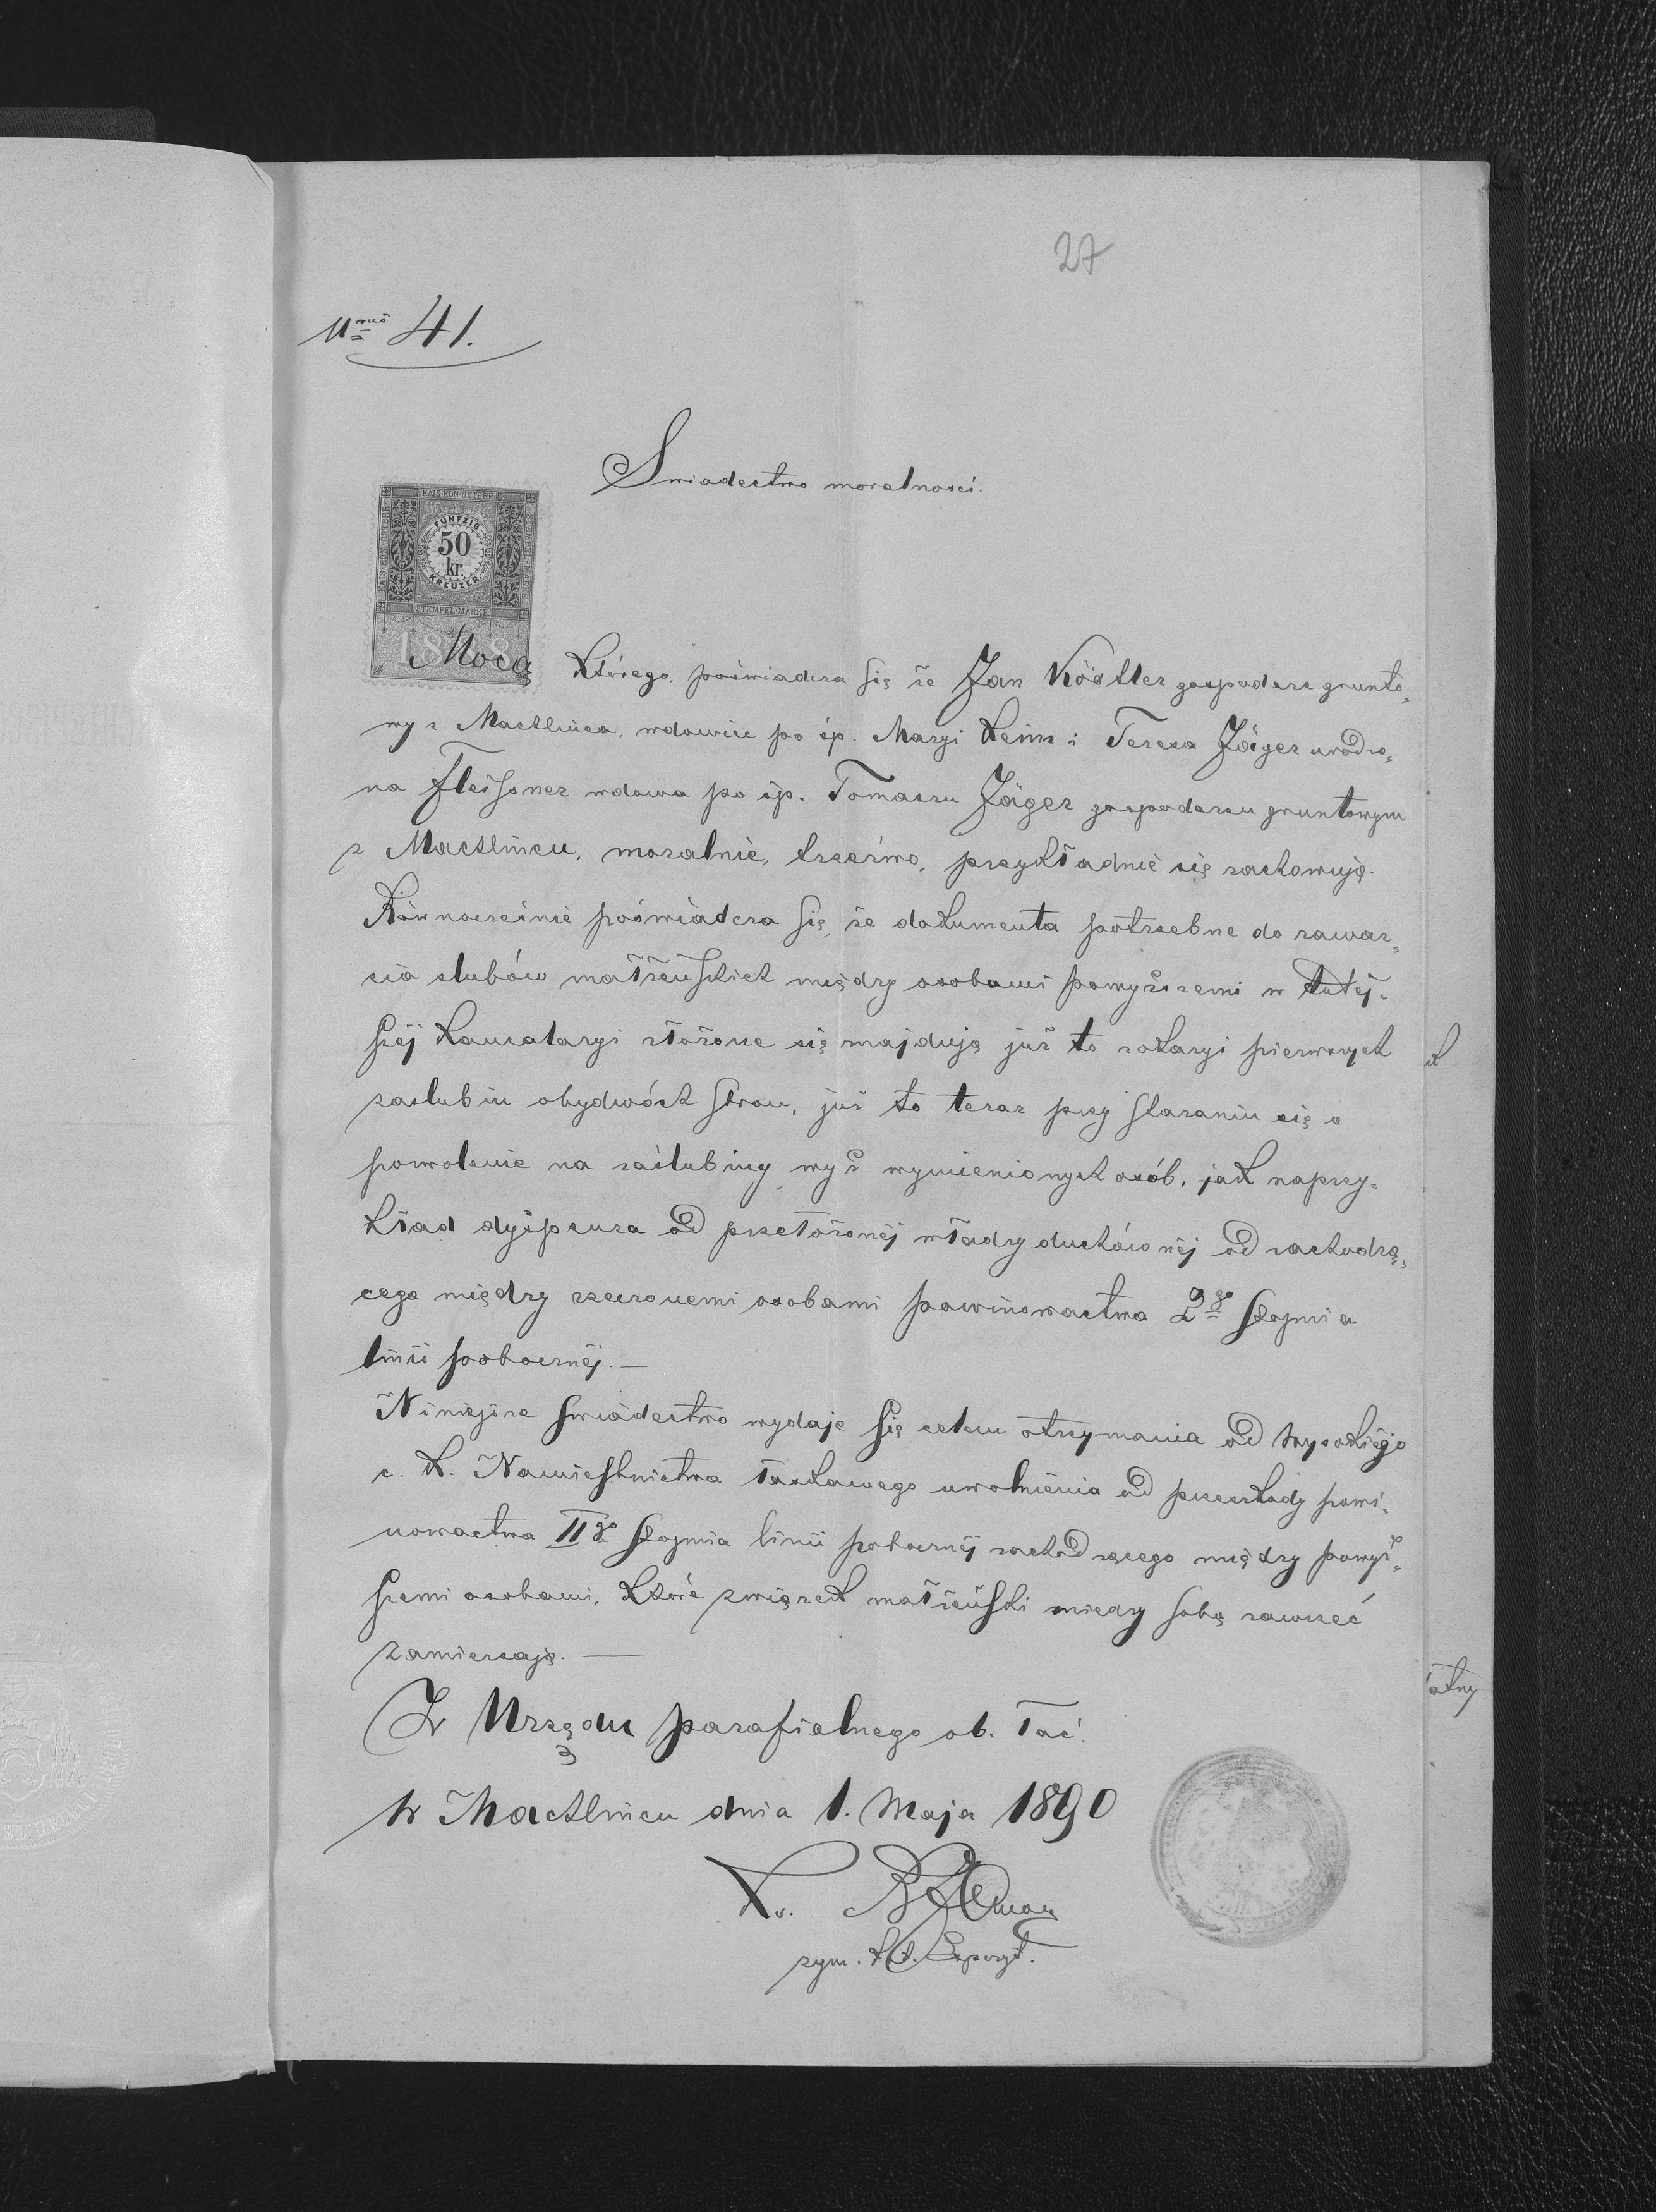 27
Nrus 41.
Swiadectwo moralności.
KAIS. KÖN. ÖSTERR.
FÜNFZIG
50
kr.
KREUZER
STEMPEL-MARKE
1888
Mocą którego, poświadcza się że Jan Köstler gospodarz grunto„
wy z Machlińca, wdowiec po śp. Maryi Keim i Teresa Jäger urodzo„
na Fleissner wdowa po śp. Tomaszu Jäger gospodarzu gruntowym
z Machlińcu, moralnie, trzeźwo, przykładnie się zachowują.
Równocześnie poświadcza się, że dokumenta potrzebne do zawar„
cia slubów małżeńskich między osobami powyższemi w tutej„
széj kancalaryi złożone się znajdują już to zokazyi pierwszych
zaslubin obydwóch stron, już to teraz przy staraniu się o
pozwolenie na zaślubiny wyż wymienionych osób, jak naprzy„
kład dyspensa od przełożonéj władzy duchównéj od zachodzą„
cego między rzeczonemi osobami powinowactwa 2go stopnia
linii pobocznéj. —
Niniejsze swiadectwo wydaje się celem otrzymania od Wysokiego
c. k. Namiestnictwa łaskawego uwolnienia od przeszkody powi„
nowactwa IIgo stopnia linii pobocznéj zachodzącego między powyż„
szemi osobami, które związek małżeński miedzy sobą zawrzeć
zamierzają. —
Z Urzędu parafialnego ob. łać.
w Machlińcu dnia 1. Maja 1890
X.
zym. kat. Expozyt.